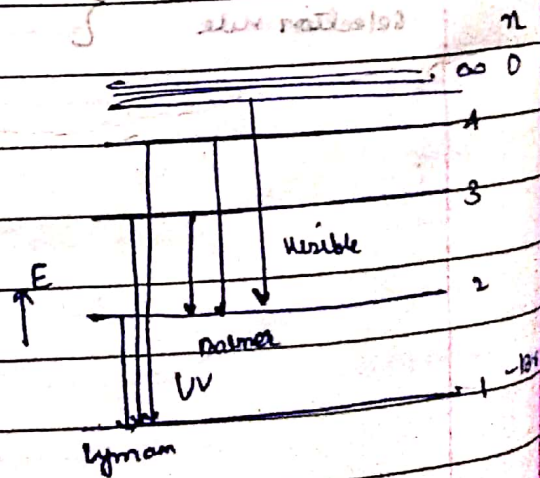 n
∞ 0
4
3
Visible
E
2
Balmer
UV
1
Lyman